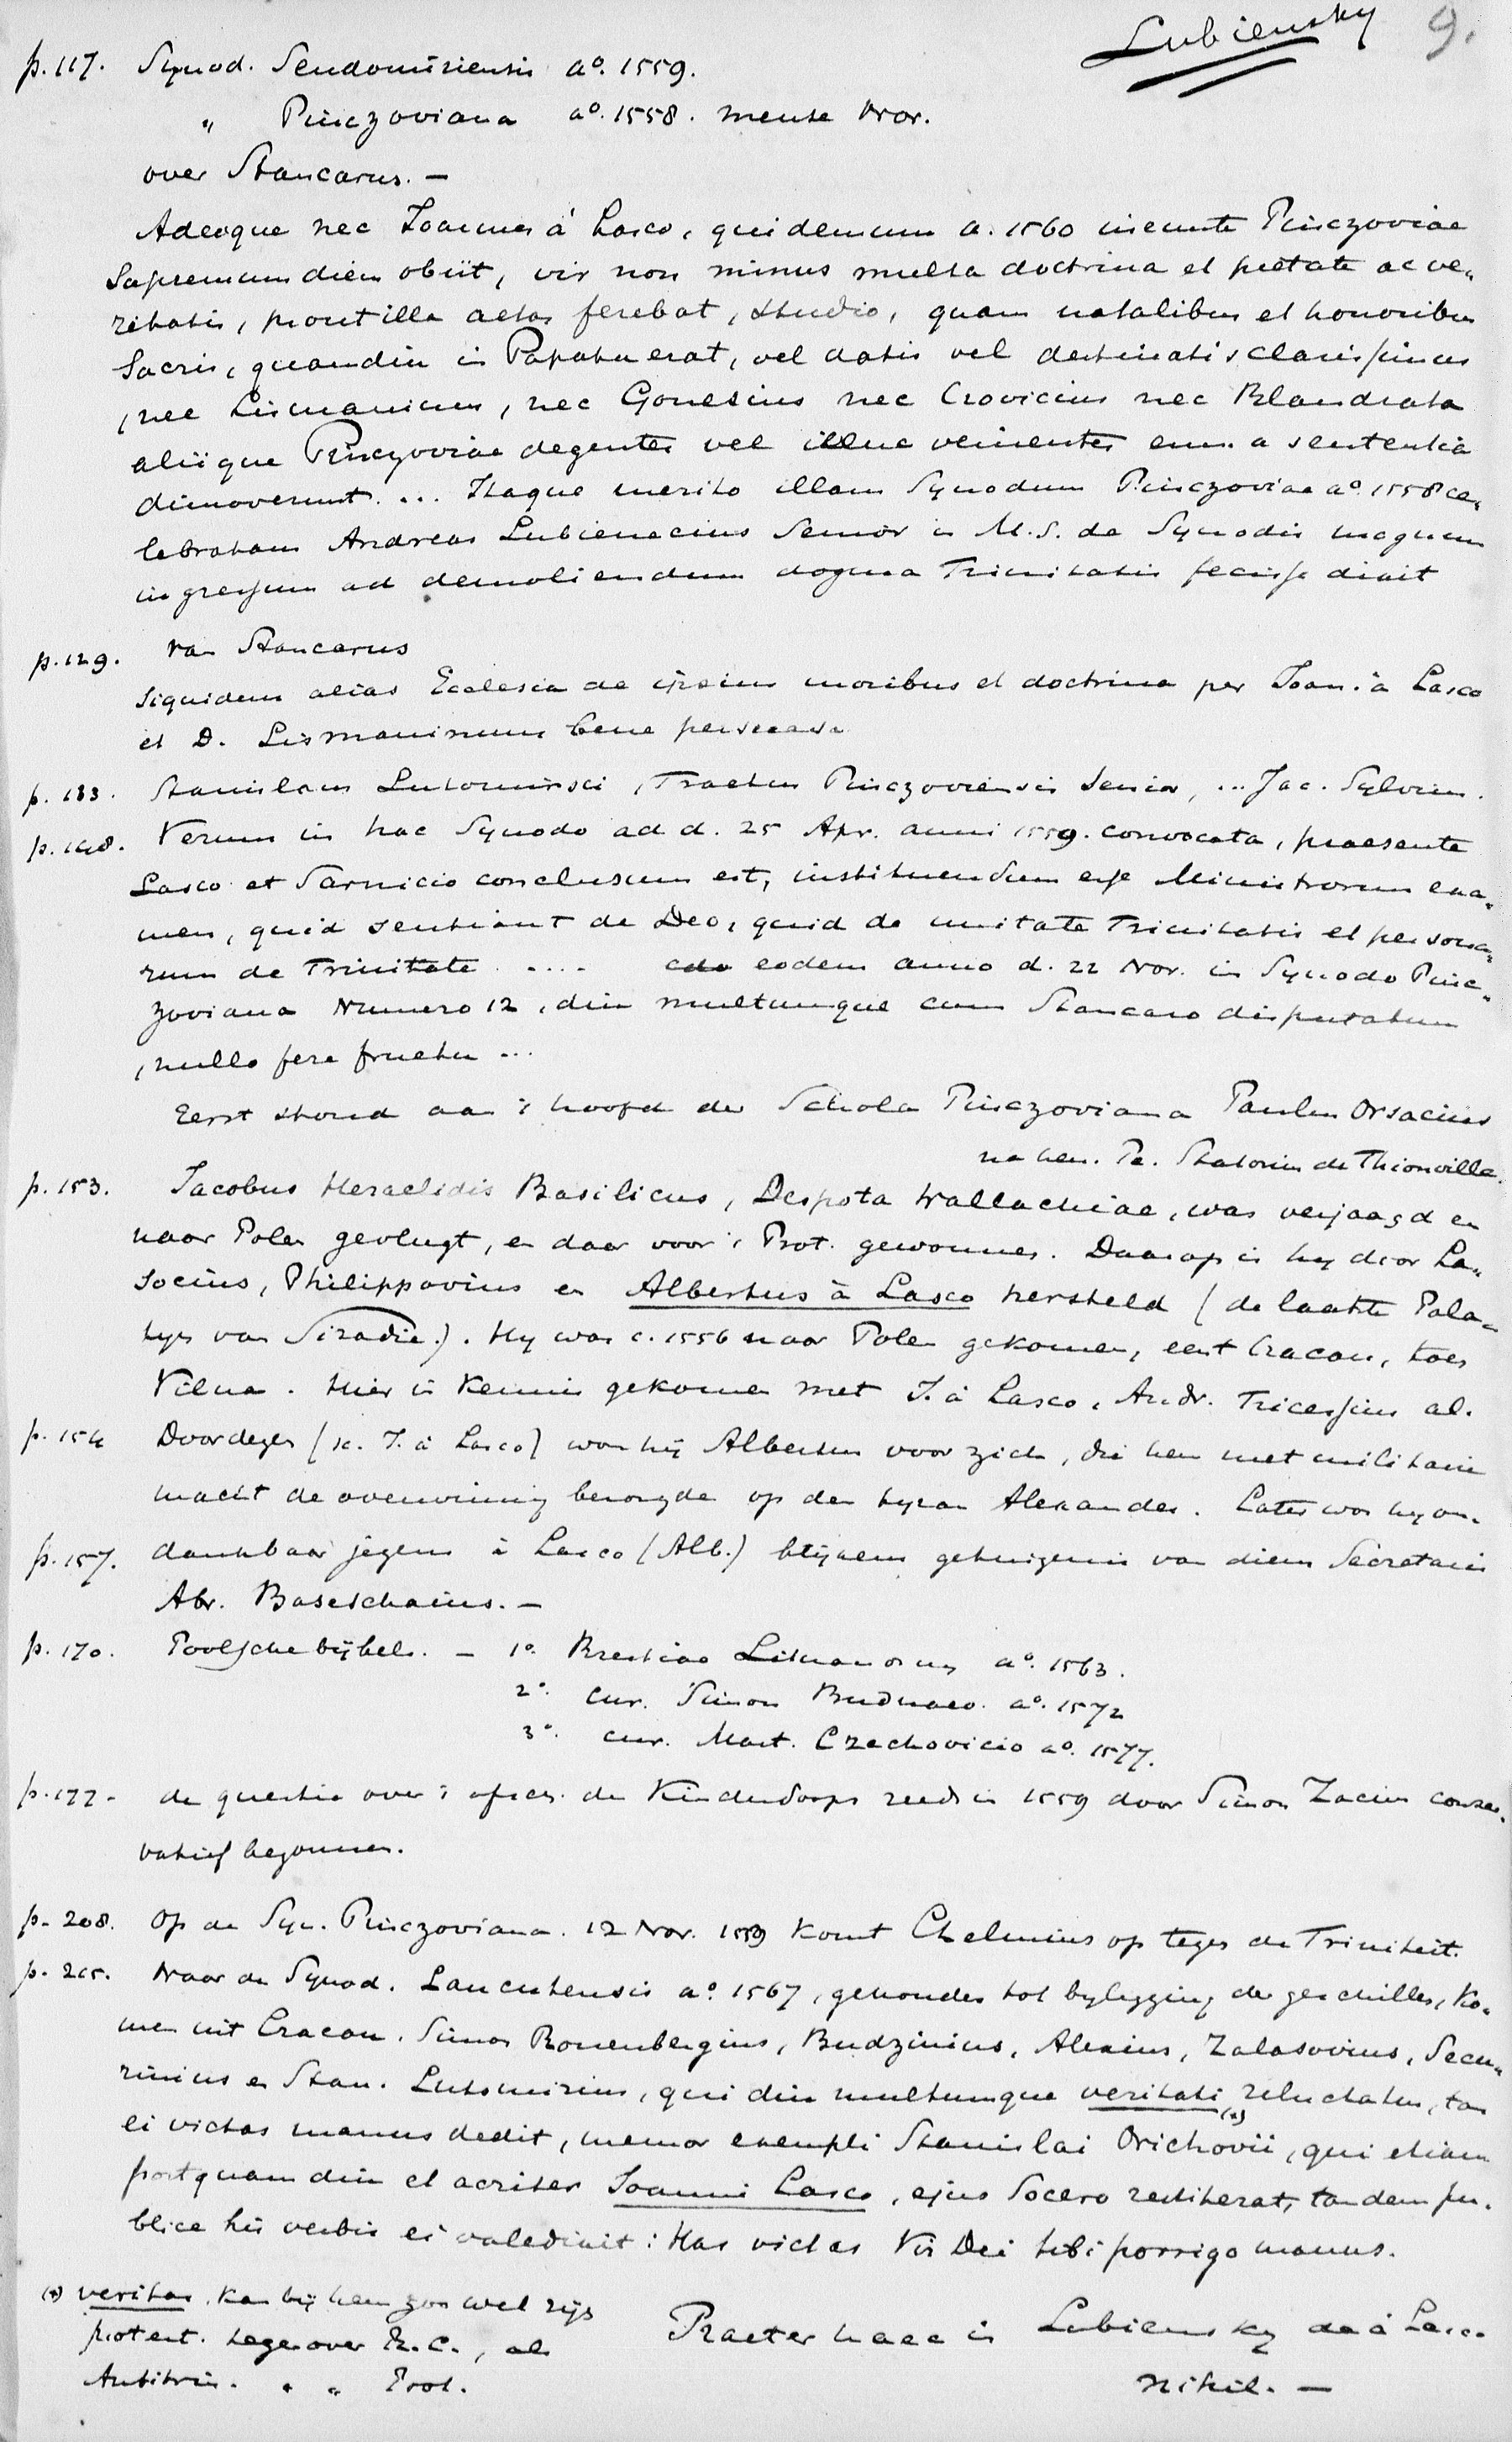 Lubiensky 9.
p.117. Synod. Sendomiriensis a°. 1559.
" Pinczoviana a°. 1558. mense Nov.
over Stancarus. —
Adeoque nec Joannes à Lasco, qui demum a. 1560 ineunte Pinczoviae
supremum diem obiit, vir non minus multa doctrina et pietate ac ve„
ritatis, prout illa aetas ferebat, studio, quam natalibus et honoribus
Sacris, quamdiu in Papatu erat, vel datis vel destinatis clarissimus
, nec Lismaninus, nec Gonesius nec Crovicius nec Blandrata
aliique Pinczoviae degentes vel illuc venientes eum a sententia
dimoverunt. ... Itaque merito illam Synodum Pinczoviae a°. 1558 ce„
lebratam Andreas Lubieniecius Senior in M.S. de Synodis magnum
ingressum ad demoliendum dogma Trinitatis fecisse dixit
p.129. van Stancarus
siquidem alias Ecclesia de ipsius moribus et doctrina per Joan. à Lasco
et D. Lismaninum bene persuasa
p. 133. Stanislaus Lutomirsci, Tractus Pinczoviensis Senior, ... Jac. Sylvius.
p.148. Verum in hac Synodo ad d. 25 Apr. anni 1559. convocata, praesente
Lasco et Sarnicio conclusum est, instituendum esse Ministrorum exa„
men, quid sentiant de Deo, quid de unitate Trinitatis et persona„
rum de Trinitate .... eodem anno d. 22 Nov. in Synodo Pinc„
zoviana Numero 12, diu multumque cum Stancaro disputatum
, nullo fere fructu ...
Eerst stond aan 't hoofd der Schola Pinczoviana Paulus Orsacius
na hem. Pe. Statorius de Thionville.
p. 153. Jacobus Heraclidis Basilicus, Despota Wallachiae, was verjaagd en
naar Polen gevlugt, en daar voor 't Prot. gewonnen. Daarop is hy door La„
socius, Philippovius en Albertus à Lasco hersteld (de laatste Pala„
tyn van Siradie.). Hy was c. 1556 naar Polen gekomen, eerst Cracau, toen
Vilna. Hier in kennis gekomen met J. à Lasco, Andr. Tricessius al.
p. 154 Door dezen (sc. J. à Lasco) won hij Albertus voor zich, die hem met militaire
macht de overwinning bezorgde op den tyran Alexander. Later was hy on„
p. 157. dankbaar jegens à Lasco (Alb.) blijkens getuigenis van diens Secretaris
Abr. Baseschaius. —
p. 170. Poolsche bijbels. — 1°. Brestiae Lituanorum a°. 1563.
2°. cur. Simon Budnaeo. a°. 1572
3°. cur. Mart. Czechovicio a°. 1577.
p. 177. de questie over 't afsch. der Kinderdoops reeds in 1559 door Simon Zacius conser„
vatief begonnen.
p. 208. Op de Syn. Pinczoviana. 12 Nov. 1559 komt Chelmius op tegen de Triniteit.
p. 215. Naar de Synod. Lancutensis a°. 1567, gehouden tot bylegging der geschillen, ko„
men uit Cracau. Simon Ronenbergius, Budzinius, Alexius, Zalasovius, Secu„
rinius en Stan. Lutomirius, qui diu multumque veritati (*) reluctatus, tan
ei victas manus dedit, memor exempli Stanislai Orichovii, qui etiam
postquam diu et acriter Joanni Lasco, ejus Socero restiterat, tandem pu„
blice his verbis ei valedixit: Has victas Vir Dei tibi porrigo manus.
(*) veritas. kan bij hem zoo wel zijn
protest. tegenover R.C., als
Antitrin. " " Prot.
Praeter haec in Lubiensky de à Lasco
nihil. —